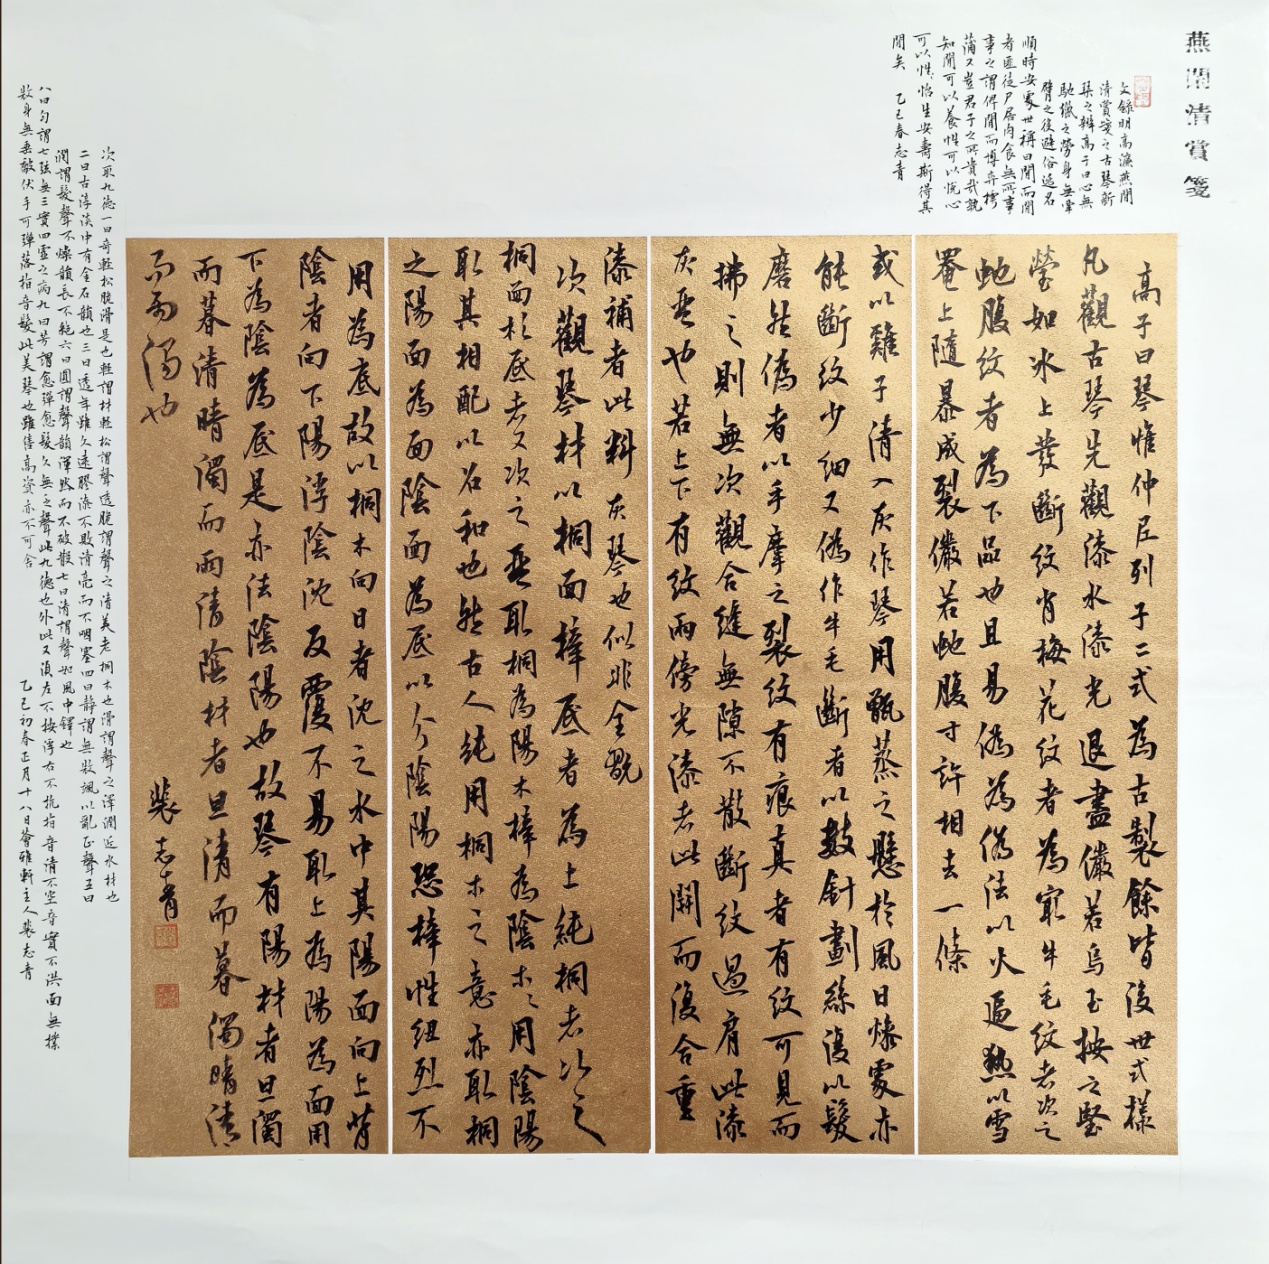 燕閒清賞箋
文錄明高濂燕閒
清賞箋之古琴新
琹之辨高子曰心無
馳獵之勞身無牽
臂之役避俗逃名
順時安處世稱曰閒而閒
者匪徒尸居肉食無所事
事之謂俾閒而博弈樗
蒲又豈君子之所貴哉孰
知閒可以養性可以悅心
可以怡生安壽斯得其
閒矣 乙巳春志青
高子曰琴惟仲尼列子二式為古製餘皆後世式樣
凡觀古琴先觀漆水漆光退盡儼若烏玉按之堅
瑩如冰上發斷紋背梅花紋者為最牛毛紋者次之
虵腹紋者為下品也且易偽為偽法以火逼熱以雪
罨上隨暴成裂儼若虵腹寸許相去一條
或以雞子清入灰作琴用甑蒸之懸於風日燥處亦
能斷紋少細又偽作牛毛斷者以數針劃絲復以髮
磨然偽者以手摩之裂紋有痕真者有紋可見而
拂之則無次觀合縫無隙不散斷紋過肩此漆
灰重也若上下有紋兩傍光漆者此開而復合重
漆補者此料灰琴也似非全甑
次觀琴材以桐面梓底者為上純桐者次之
桐面杉底者又次之要取桐為陽木梓為陰木用陰陽
取其相配以召和也然古人純用桐木之意亦取桐
之陽面為面陰面為底以分陰陽恐梓性紐烈不
用為底故以桐木向日者沈之水中其陽面向上背
陰者向下陽浮陰沈反覆不易取上為陽為面用
下為陰為底是亦法陰陽也故琴有陽材者旦濁
而暮清晴濁而雨清陰材者旦清而暮濁晴清
而雨濁也
裴志青
次取九德一曰奇輕松脆滑是也輕謂材輕松謂聲透脆謂聲之清美老桐木也滑謂聲之澤潤近水材也
二曰古淳淡中有金石韻也三曰透年雖久遠膠漆不敗清亮而不咽塞四曰靜謂無殺颯以亂正聲五曰
潤謂發聲不燥韻長不絕六曰圓謂聲韻渾然而不破散七曰清謂聲如風中鐸也
八曰勻謂七弦無三實四虛之病九曰芳謂愈彈愈發久無乏聲此九德也外此又須左不按浮右不抗指音清不空音實不洪面無撲
殺身無垂敲伏手可彈落指音發此美琴也雖倍高資亦不可舍 乙巳初春正月十八日薈雅軒主人裴志青